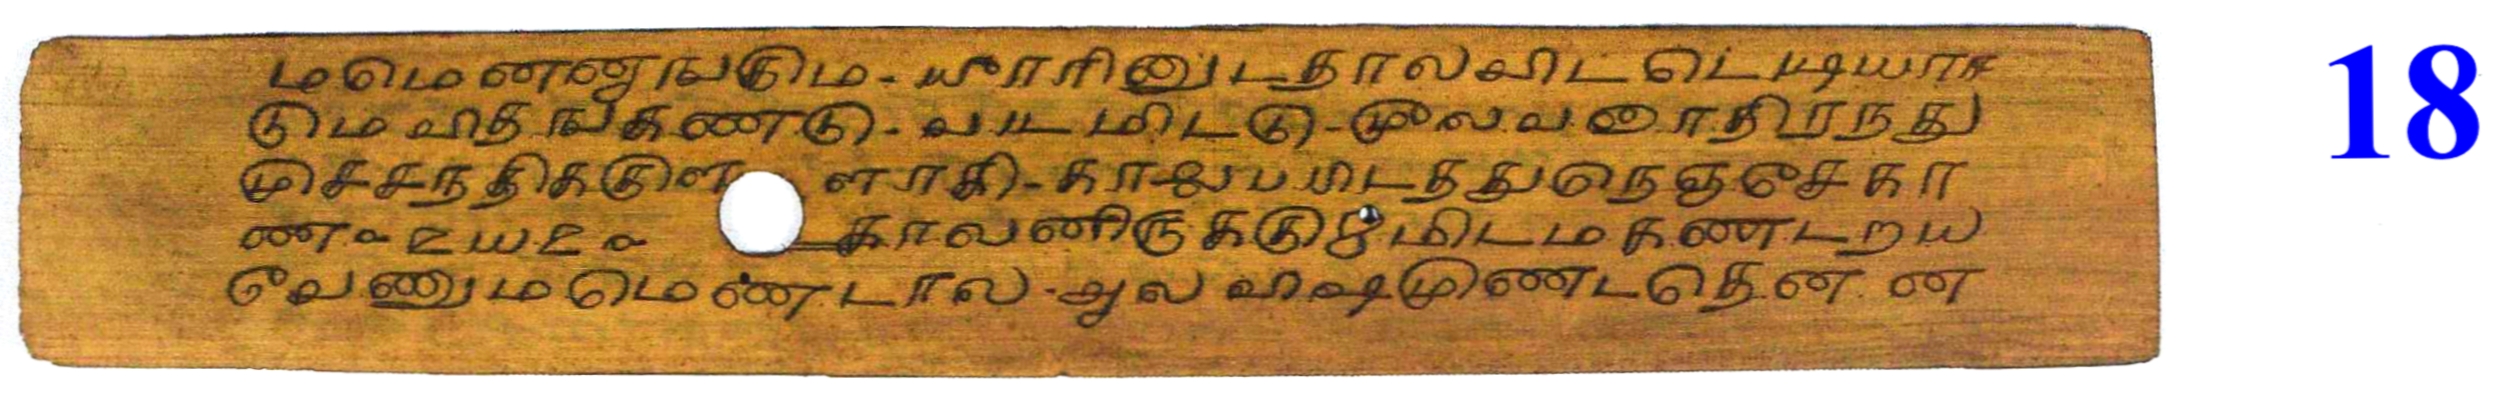 மமெனனுஙகும - யூாரினுடதாலவிடடெடியாக
கும விதஙகணடு - வடமிடடு - மூலவனாதிரநது
முசசநதிககுள ளாகி - காலபமிடதது நெஞசேகா
ண ௨ ௰ ௨ காலனிருககுமிடம கணடறிய
வேணுமமெணடால - ஆல விஷமுணடதென ன
18